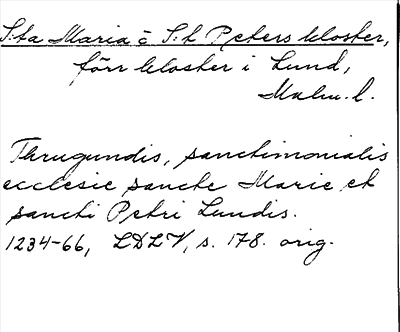 S:ta Maria o S:t Peters kloster,
förr kloster i Lund,
Malm. l.
Thrugundis, sanctimonialis
ecclesie sancte Marie et
sancti Petri Lundis.
1234-66, LDLV, s. 178. orig.